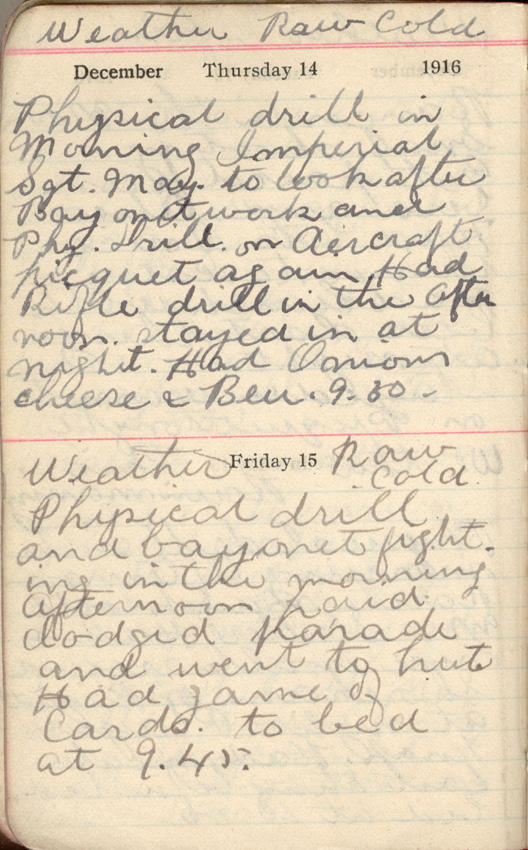 Weather Raw Cold
December Thursday 14 1916
Physical drill in
Morning Imperial
Sgt. May. to look after
Bayonet work and
Phy. Drill. on Aircraft
picquet again. Had
Rifle drill in the after
noon. stayed in at
night. Had Onions
cheese & Beer. 9.30 -
Weather Friday 15 Raw
Cold
Physical drill
and bayonet fight.
ing in the morning
afternoon paid.
dodged parade
and went to hut
Had game of
Cards. to bed
at 9.45.